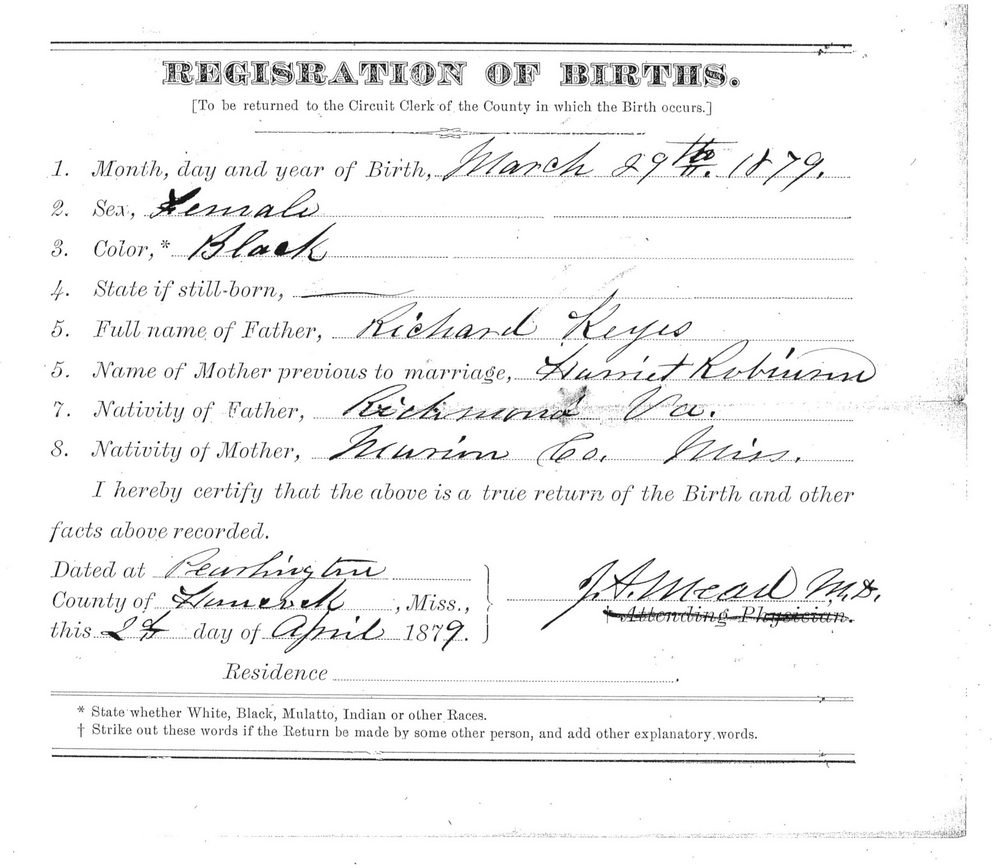 REGISRATION OF BIRTHS.
[To be returned to the Circuit Clerk of the County in which the Birth occurs.]
1. Month, day and year of Birth, March 29th. 1879.
2. Sex, Female
3. Color,* Black
4. State if still-born, —
5. Full name of Father, Richard Keyes
5. Name of Mother previous to marriage, Harriet Robinson
7. Nativity of Father, Richmond Va.
8. Nativity of Mother, Marion Co. Miss.
I hereby certify that the above is a true return of the Birth and other
facts above recorded.
Dated at Pearlington
County of Hancock, Miss.,
this day of April 1879.
J. A. Mead M.D.
† Attending Physician.
Residence
* State whether White, Black, Mulatto, Indian or other Races.
† Strike out these words if the Return be made by some other person, and add other explanatory words.